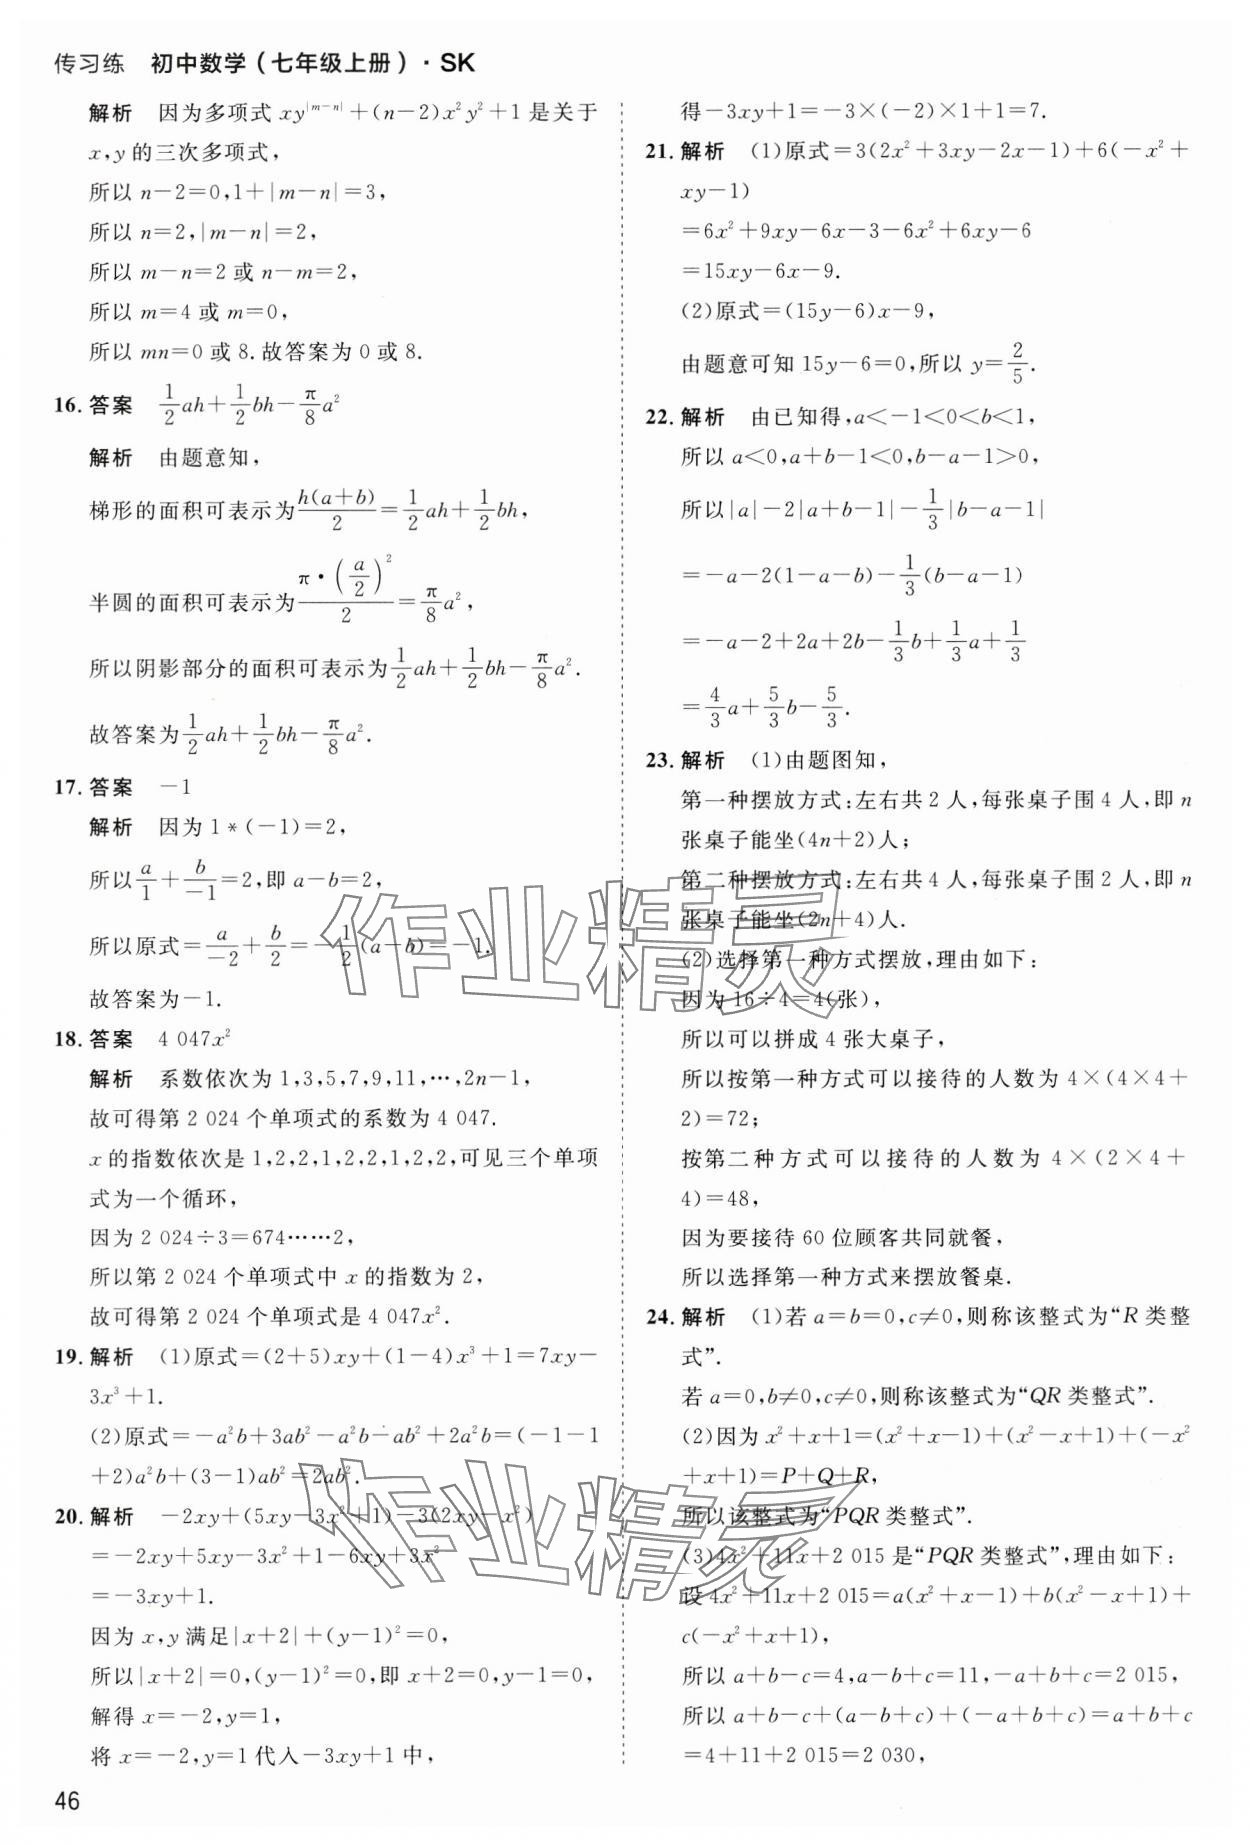 传习练 初中数学(七年级上册)·SK
解析 因为多项式 xy^{|m-n|}+(n-2)x²y²+1 是关于
x,y 的三次多项式,
所以 n-2=0,1+|m-n|=3,
所以 n=2,|m-n|=2,
所以 m-n=2 或 n-m=2,
所以 m=4 或 m=0,
所以 mn=0 或 8.故答案为 0 或 8.
16. 答案 \frac{1}{2}ah+\frac{1}{2}bh-\frac{π}{8}a²
解析 由题意知,
梯形的面积可表示为\frac{h(a+b)}{2}=\frac{1}{2}ah+\frac{1}{2}bh,
半圆的面积可表示为\frac{π·(\frac{a}{2})²}{2}=\frac{π}{8}a²,
所以阴影部分的面积可表示为\frac{1}{2}ah+\frac{1}{2}bh-\frac{π}{8}a².
故答案为\frac{1}{2}ah+\frac{1}{2}bh-\frac{π}{8}a².
17. 答案 -1
解析 因为 1*(-1)=2,
所以\frac{a}{1}+\frac{b}{-1}=2,即 a-b=2,
所以原式=\frac{a}{-2}+\frac{b}{2}=-\frac{1}{2}(a-b)=-1.
故答案为-1.
18. 答案 4 047x²
解析 系数依次为 1,3,5,7,9,11,…,2n-1,
故可得第 2 024 个单项式的系数为 4 047.
x 的指数依次是 1,2,2,1,2,2,1,2,2,可见三个单项
式为一个循环,
因为 2 024÷3=674……2,
所以第 2 024 个单项式中 x 的指数为 2,
故可得第 2 024 个单项式是 4 047x².
19. 解析 (1)原式=(2+5)xy+(1-4)x³+1=7xy-
3x³+1.
(2)原式=-a²b+3ab²-a²b-ab²+2a²b=(-1-1
+2)a²b+(3-1)ab²=2ab².
20. 解析 -2xy+(5xy-3x²+1)-3(2xy-x²)
=-2xy+5xy-3x²+1-6xy+3x²
=-3xy+1.
因为 x,y 满足|x+2|+(y-1)²=0,
所以|x+2|=0,(y-1)²=0,即 x+2=0,y-1=0,
解得 x=-2,y=1,
将 x=-2,y=1 代入-3xy+1 中,
46
得-3xy+1=-3×(-2)×1+1=7.
21. 解析 (1)原式=3(2x²+3xy-2x-1)+6(-x²+
xy-1)
=6x²+9xy-6x-3-6x²+6xy-6
=15xy-6x-9.
(2)原式=(15y-6)x-9,
由题意可知 15y-6=0,所以 y=\frac{2}{5}.
22. 解析 由已知得,a<-1<0<b<1,
所以 a<0,a+b-1<0,b-a-1>0,
所以|a|-2|a+b-1|-\frac{1}{3}|b-a-1|
=-a-2(1-a-b)-\frac{1}{3}(b-a-1)
=-a-2+2a+2b-\frac{1}{3}b+\frac{1}{3}a+\frac{1}{3}
=\frac{4}{3}a+\frac{5}{3}b-\frac{5}{3}.
23. 解析 (1)由题图知,
第一种摆放方式:左右共 2 人,每张桌子围 4 人,即 n
张桌子能坐(4n+2)人;
第二种摆放方式:左右共 4 人,每张桌子围 2 人,即 n
张桌子能坐(2n+4)人.
(2)选择第一种方式摆放,理由如下:
因为 16÷4=4(张),
所以可以拼成 4 张大桌子,
所以按第一种方式可以接待的人数为 4×(4×4+
2)=72;
按第二种方式可以接待的人数为 4×(2×4+
4)=48,
因为要接待 60 位顾客共同就餐,
所以选择第一种方式来摆放餐桌.
24. 解析 (1)若 a=b=0,c≠0,则称该整式为“R 类整
式”.
若 a=0,b≠0,c≠0,则称该整式为“QR 类整式”.
(2)因为 x²+x+1=(x²+x-1)+(x²-x+1)+(-x²
+x+1)=P+Q+R,
所以该整式为“PQR 类整式”.
(3)4x²+11x+2 015是“PQR 类整式”,理由如下:
设 4x²+11x+2 015=a(x²+x-1)+b(x²-x+1)+
c(-x²+x+1),
所以 a+b-c=4,a-b+c=11,-a+b+c=2 015,
所以 a+b-c+(a-b+c)+(-a+b+c)=a+b+c
=4+11+2 015=2 030,
作业精灵
作业精灵